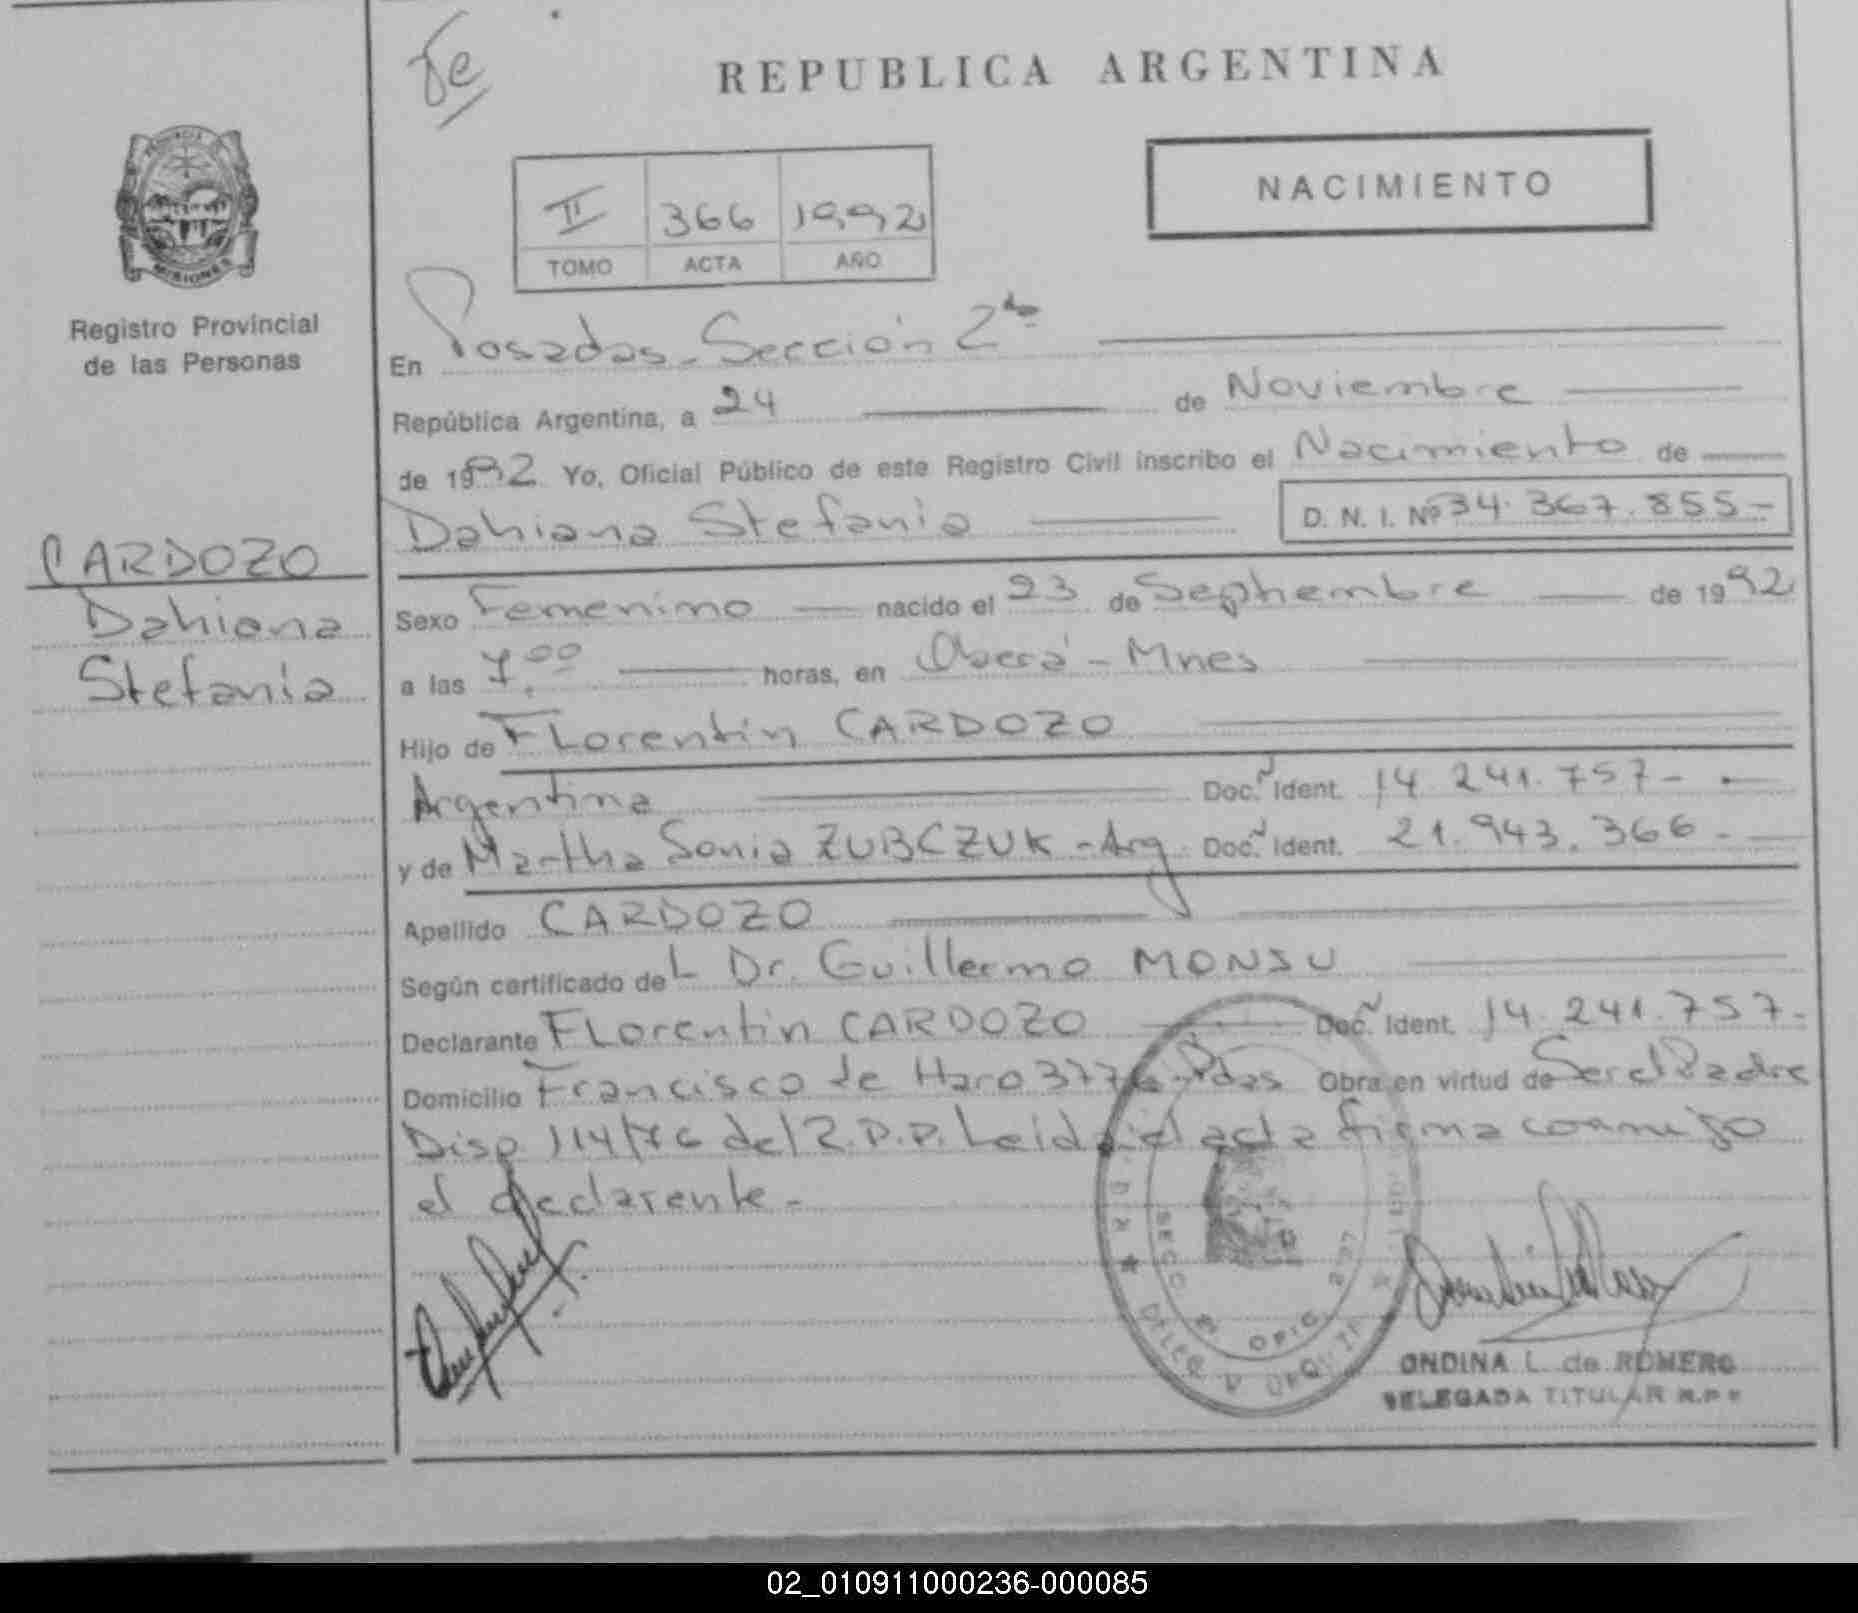 Fe
REPUBLICA ARGENTINA
NACIMIENTO
II 366 1992
TOMO ACTA AÑO
PROVINCIA
MISIONES
Registro Provincial
de las Personas
CARDOZO
Dahiana
Stefania
En Posadas - Sección 2da
República Argentina, a 24 de Noviembre
de 1992 Yo, Oficial Público de este Registro Civil inscribo el Nacimiento de
Dahiana Stefania D. N. I. Nº 34.367.855-
Sexo Femenino nacido el 23 de Septiembre de 1992
a las 7,00 horas, en Oberá - Mnes
Hijo de Florentin CARDOZO
Argentina Doc. Ident. 14.241.757-
y de Martha Sonia ZUBCZUK - Arg. Doc. Ident. 21.943.366-
Apellido CARDOZO
Según certificado del Dr. Guillermo MONSU
Declarante Florentin CARDOZO Doc. Ident. 14.241.757-
Domicilio Francisco de Haro 3776 - Pdas Obra en virtud de Ser el Padre
Disp. 114/76 del R.P.P. Leida el acta firma conmigo
el declarente-
ONDINA L. de ROMERO
DELEGADA TITULAR R.P.P
02_010911000236-000085